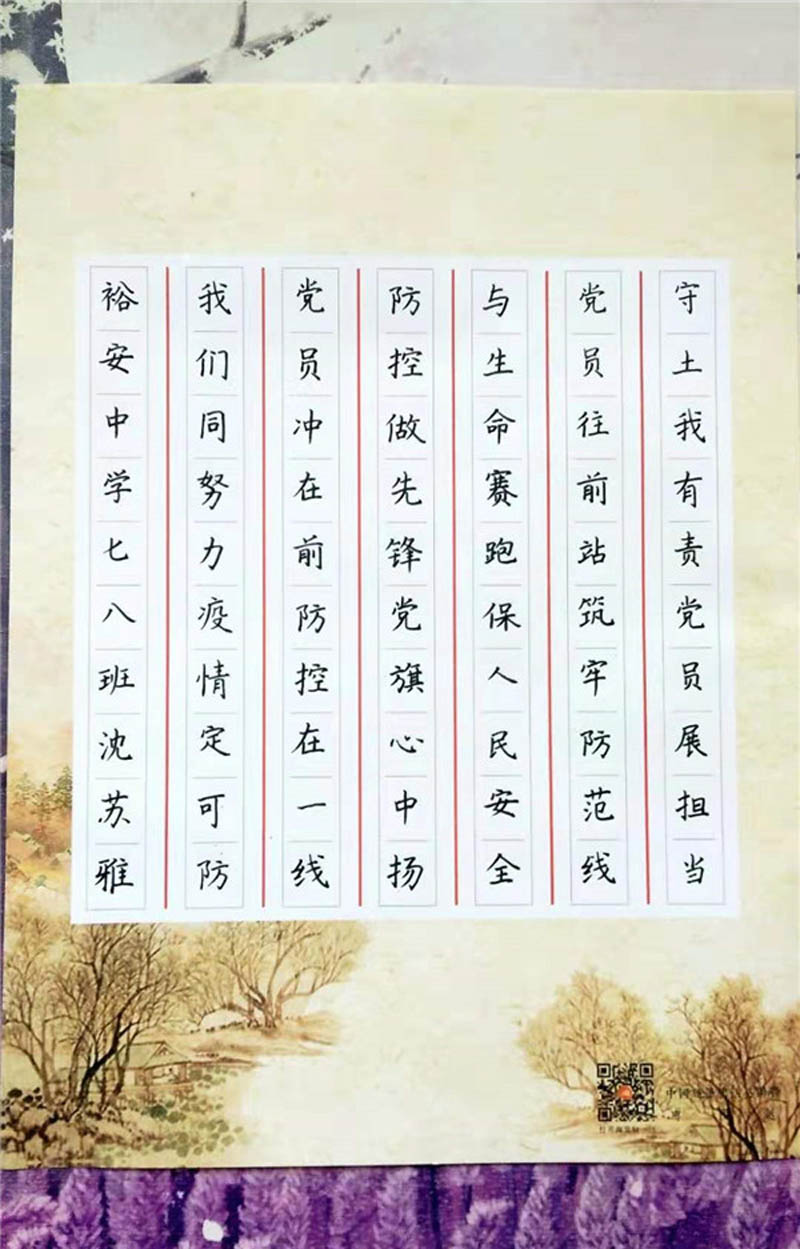 守土我有责党员展担当
党员往前站筑牢防范线
与生命赛跑保人民安全
防控做先锋党旗心中扬
党员冲在前防控在一线
我们同努力疫情定可防
裕安中学七八班沈苏雅